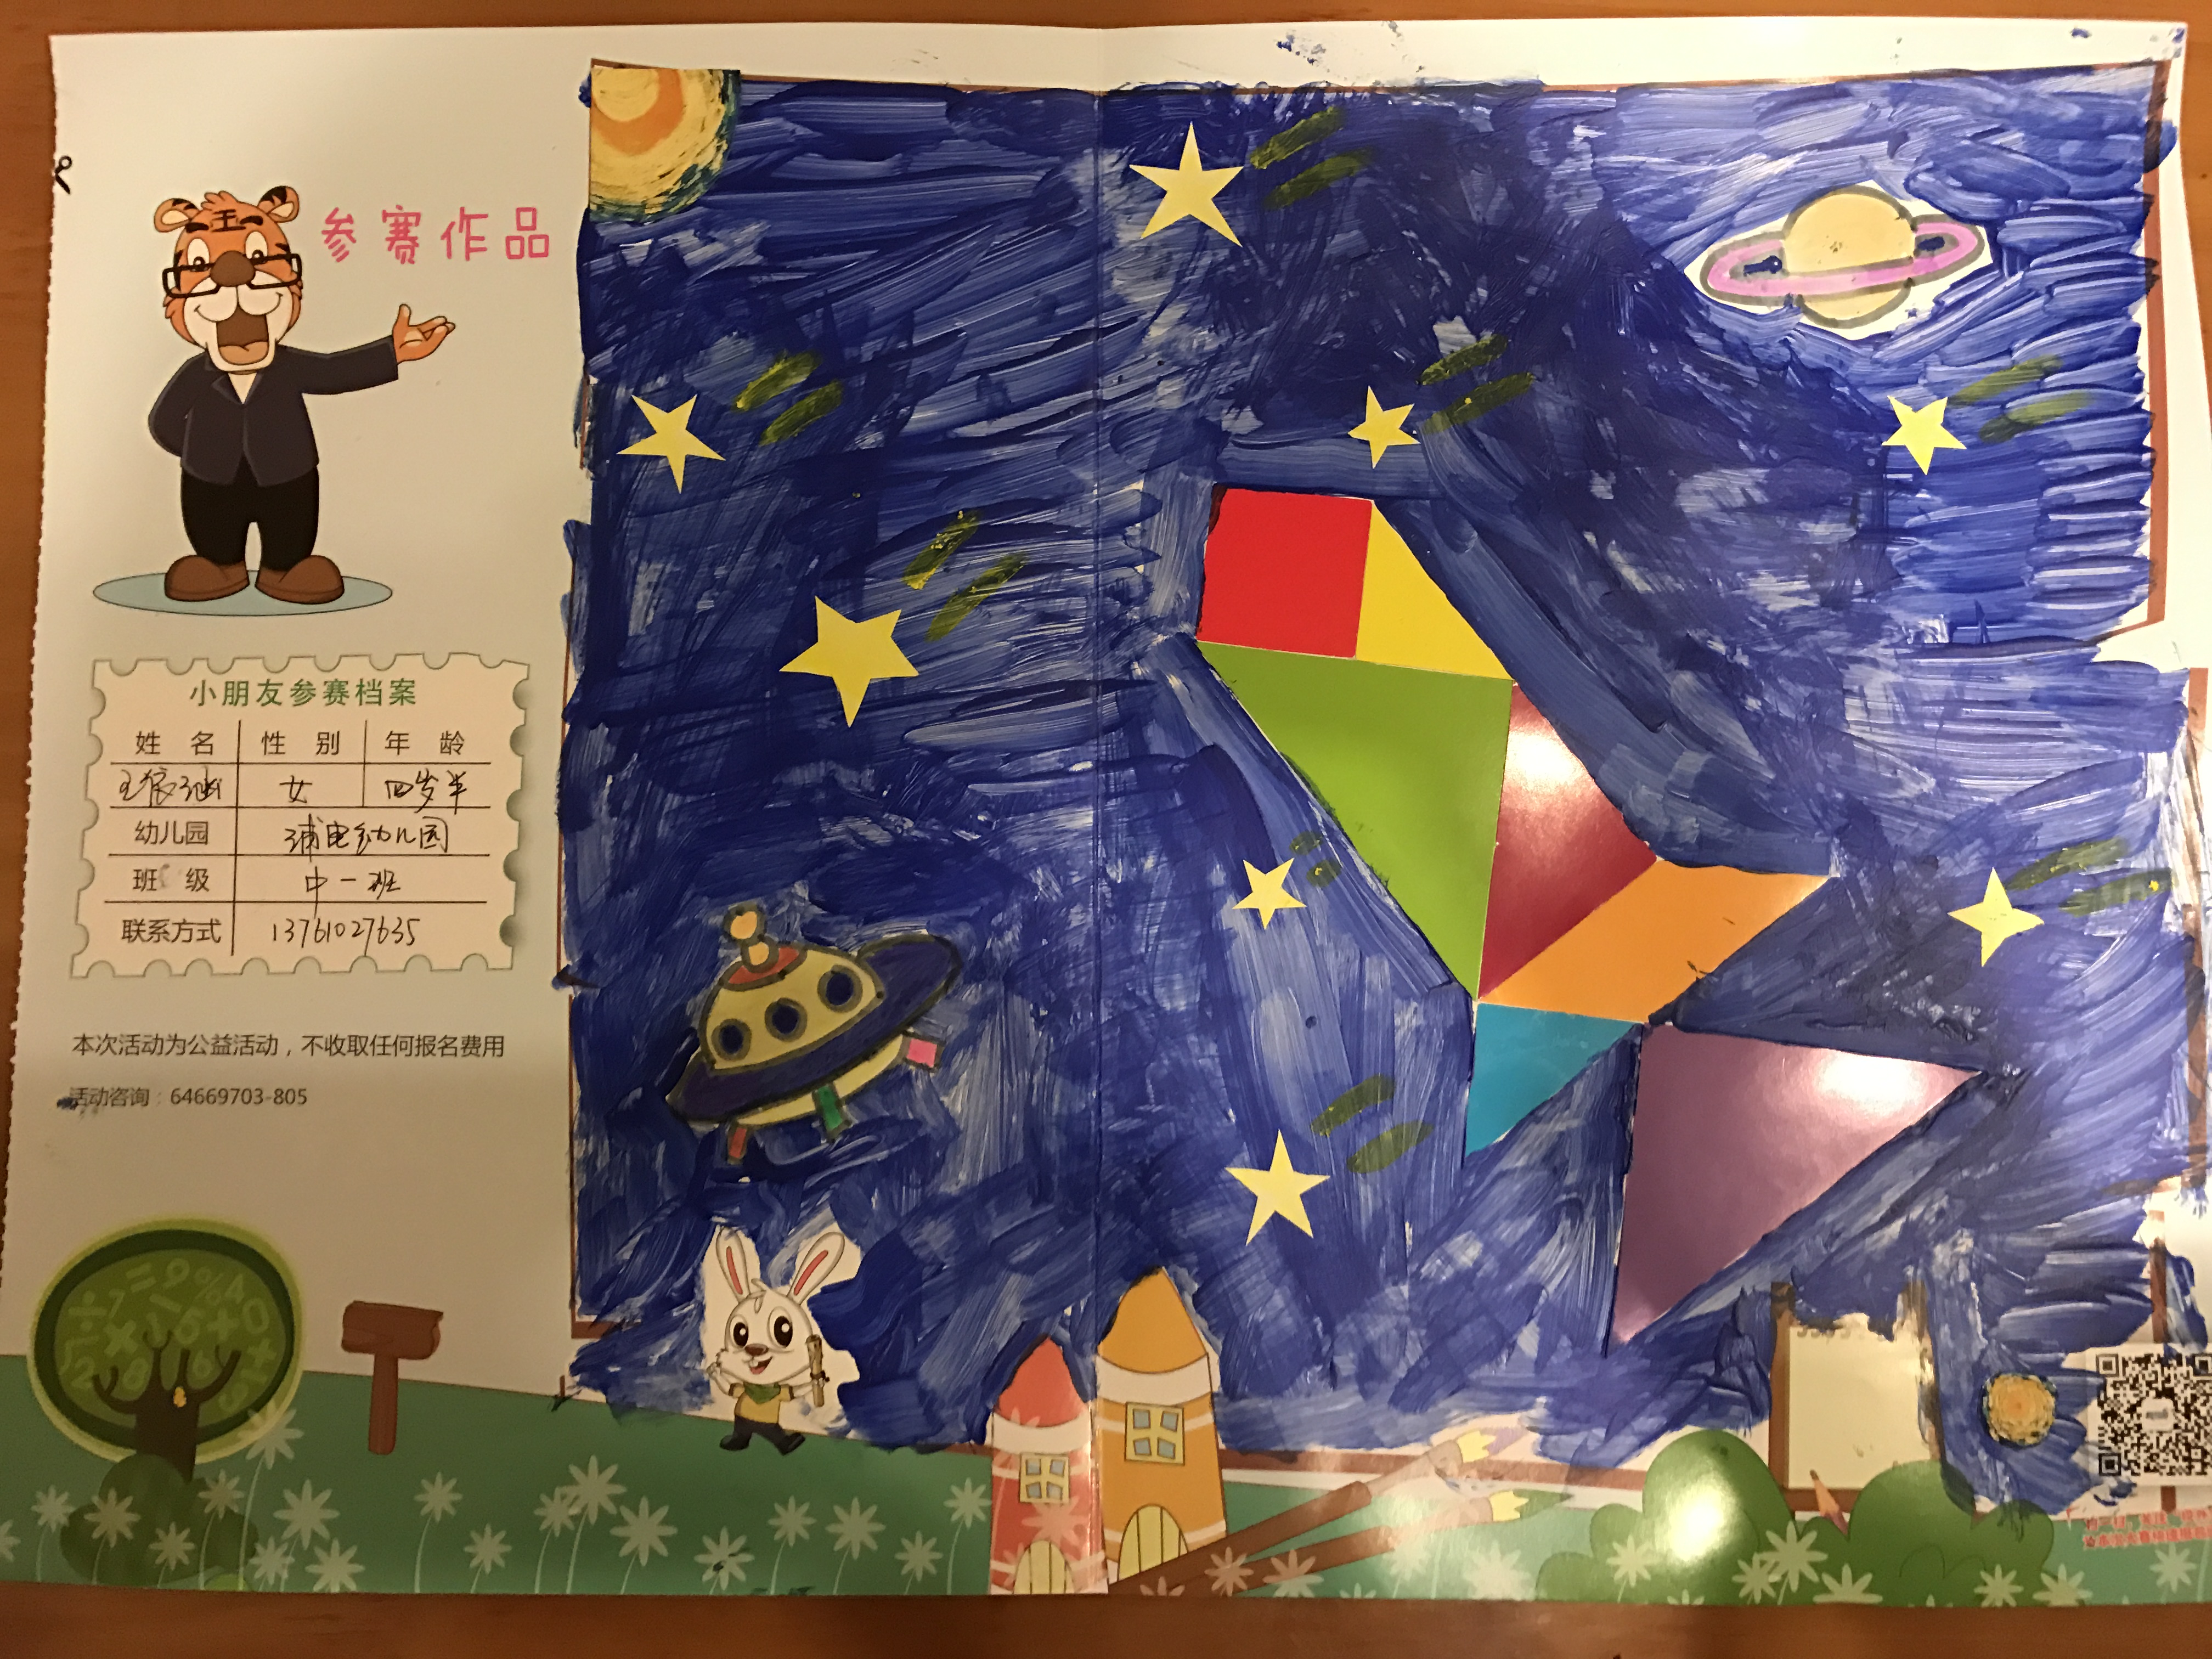 参赛作品
王
小朋友参赛档案
姓 名 性 别 年 龄
王依涵 女 四岁半
幼儿园 浦电幼儿园
班 级 中一班
联系方式 13761027635
本次活动为公益活动，不收取任何报名费用
活动咨询：64669703-805